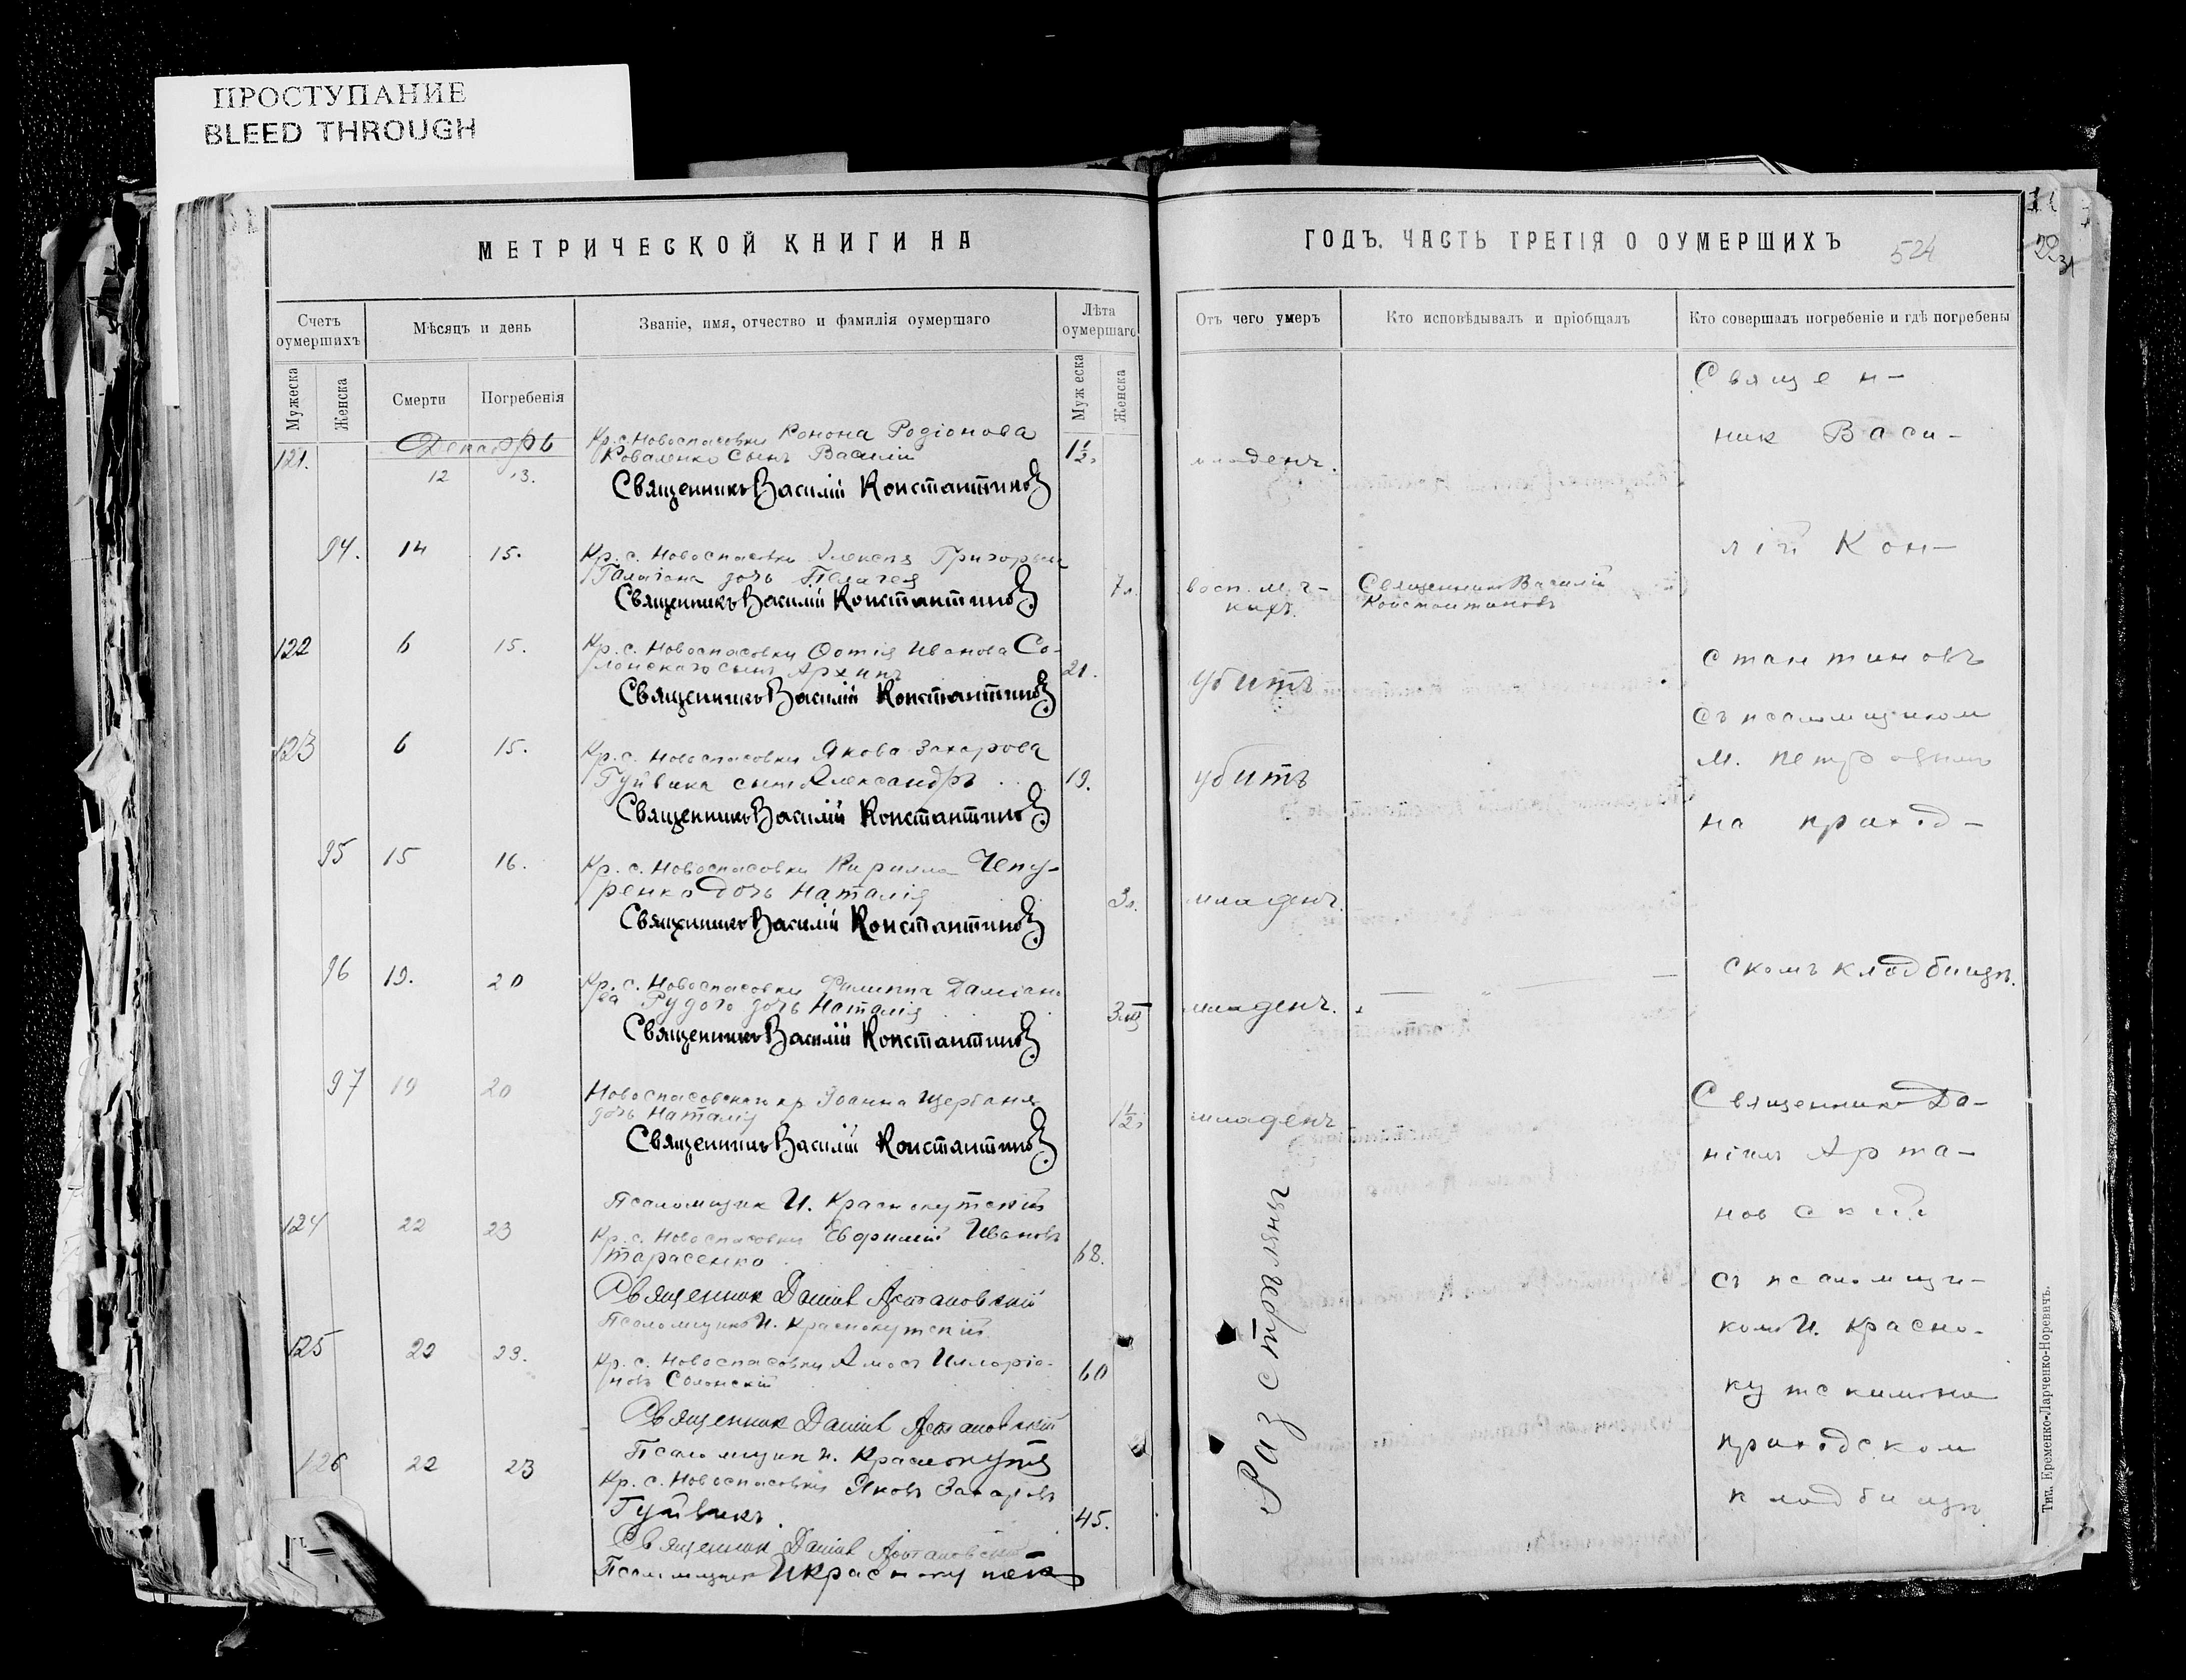 ПРОСТУПАНИЕ
BLEED THROUGH
МЕТРИЧЕСКОЙ КНИГИ НА
Счетъ оумершихъ
Мѣсяцъ и день
Званіе, имя, отчество и фамилія оумершаго
Лѣта оумершаго
Мужеска
Женска
Смерти
Погребенія
Муж еска
Женска
Декабрь
121.
12 13.
Кр. с. Новоспасовки Конона Родіонова
Коваленко сынъ Василій
1½
Священникъ Василій Константиновъ
94. 14 15.
Кр. с. Новоспасовки Алексея Григорьева
Галагана дочь Пелагея
7 л.
Священникъ Василій Константиновъ
122 6 15.
Кр. с. Новоспасовки Фотія Иванова Со-
лонскаго сынъ Архипъ
21.
Священникъ Василій Константиновъ
123 6 15.
Кр. с. Новоспасовки Якова Захарова
Гуйвика сынъ Александръ
19.
Священникъ Василій Константиновъ
95 15 16.
Кр. с. Новоспасовки Кирилла Чепу-
ренка дочь Наталія
3 л.
Священникъ Василій Константиновъ
96 19. 20
Кр. с. Новоспасовки Филиппа Даміано
ва Рудого дочь Наталія
Священникъ Василій Константиновъ
97 19 20
Новоспасовскаго кр. Іоанна Щербаня
дочь Наталія
1½
Священникъ Василій Константиновъ
Псаломщик И. Краснокутскій
124 22 23
Кр. с. Новоспасовки Евфимій Ивановъ
Тарасенко
68.
Священник Даниил Артановскій
Псаломщикъ И. Краснокутскій
125 22 23.
Кр. с. Новоспасовки Амосъ Илларіо-
новъ Солонскій
60
Священник Даниил Артановскій
Псаломщик И. Краснокутск
126 22 23
Кр. с. Новоспасовки Яковъ Захаровъ
Гуйвикъ.
45.
Священник Даниил Артановскій
Псаломщик И Краснокутск
ГОДЪ. ЧАСТЬ ТРЕТІЯ О ОУМЕРШИХЪ
524
Отъ чего умеръ
Кто исповѣдывалъ и пріобщалъ
Кто совершалъ погребеніе и гдѣ погребены
младенч.
восп. м. г-
кихъ.
Священникъ Василій
Константиновъ
убитъ
убитъ
младенч.
младенч.
младенч
Разстрѣляны
Священ-
ник Васи-
лій Кон-
стантиновъ
съ псаломщиком
М. Петровым
на приход-
скомъ кладбищѣ.
Священникъ Да-
ніилъ Арта-
новскій
съ псаломщи-
комъ И. Красно-
кутскимъ на
приходском
кладбищѣ.
Тип. Еременко-Ларченко-Норевичъ.